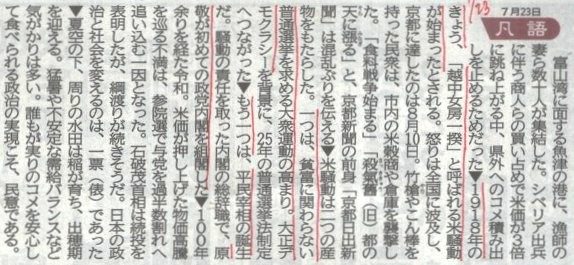 7/23
7月23日
凡語
富山湾に面する魚津の港に、漁師の
妻ら数十人が集結した。シベリア出兵
に伴う商人らの買い占めで米価が3倍
に跳ね上がる中、県外へのコメ積み出
しを止めるためだった▼1918年の
きょう、「越中女房一揆」と呼ばれる米騒動
が始まったとされる。怒りは全国に波及し、
京都に達したのは8月10日。竹槍やこん棒を
持った民衆は、市内の米穀商や倉庫を襲撃し
た。「食料戦争始まる」「殺氣舊（旧）都の
天に漲る」と、京都新聞の前身「京都日出新
聞」は混乱ぶりを伝える▼米騒動は二つの産
物をもたらした。一つは、貧富に関わらない
普通選挙を求める大衆運動の高まり。大正デ
モクラシーを背景に、25年の普通選挙法制定
へつながった▼もう一つは、平民宰相の誕生
だ。騒動の責任を取った内閣の総辞職で、原
敬が初めての政党内閣を組閣した▼100年
余りを経た令和。米価が押し上げた物価高騰
を巡る不満は、参院選で与党を過半数割れへ
追い込む一因となった。石破茂首相は続投を
表明したが、綱渡りが続きそうだ。日本の政
治と社会を変えるのは、一票（俵）であった
▼夏空の下、周りの水田は稲が育ち、出穂期
を迎える。猛暑や不安定な供給バランスなど
気がかりは多い。誰もが実りのコメを安心し
て食べられる政治の実現こそ、民意である。